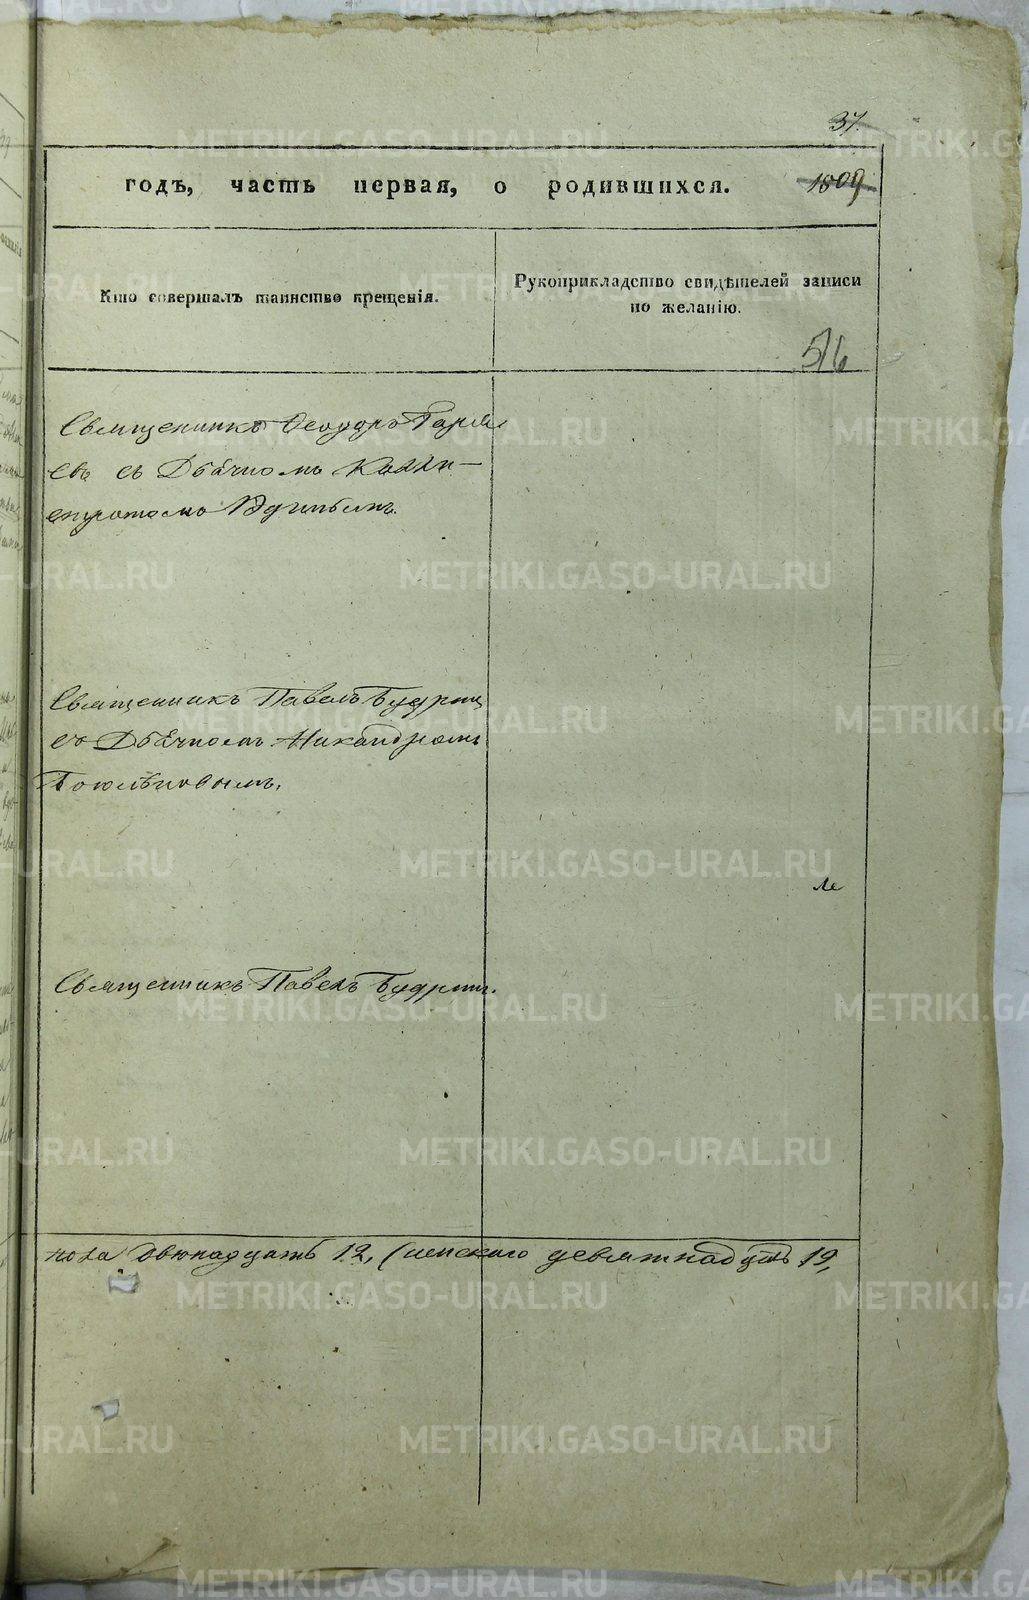 37.
годъ, часть первая, о родившихся. 1809
Кто совершалъ таинство крещенія.
Рукоприкладство свидѣтелей записи
по желанію.
516
Священникъ Ѳеодоръ
евъ съ Дьячкомъ
Священникъ Павелъ Будрин
съ Дьячкомъ Никандромъ
Священникъ Павелъ Будрин.
пола двенадцать 12, женскаго девятнадцать 19,
METRIKI.GASO-URAL.RU